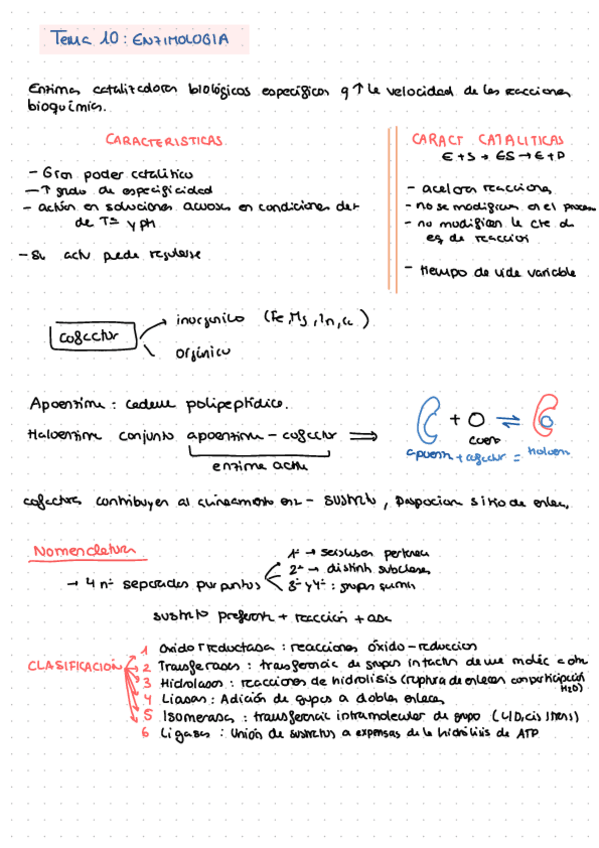 Tema 10: ENZIMOLOGIA
Enzimas catalizadores biológicos específicos q ↑ la velocidad de las reacciones
bioquímicas.
CARACTERISTICAS
- Gran poder catalitico
- ↑ grado de especificidad
- actúan en soluciones acuosas en condiciones det
de Tª y pH
- Su actv puede regularse
CARACT CATALITICAS
E + S → ES → E + P
- aceleran reacciones
- no se modifican en el proceso
- no modifican la cte de
eq de reaccion
- tiempo de vida variable
cofactor
inorganico (Fe, Mg, Zn, )
orgánico
Apoenzima: cadena polipeptídica.
Haloenzima conjunto apoenzima - cofactor ⇒
enzima activa
+ ⇌
apoenz + cofactor = holoen
cofactores contribuyen al alineamiento enz - sustrato, sitio de enlace,
Nomenclatura
→ 4 nº separados por puntos
1º →
2º → distinta subclases
3º y 4º: grupos
sustrato preferente + reacción + asa
CLASIFICACION
1 Oxidorreductasa: reacciones óxido-reduccion
2 Transferasas: transferencia de grupos intactos de una moléc a otra
3 Hidrolasas: reacciones de hidrolisis (ruptura de enlaces con participación
H2O)
4 Liasas: Adición de grupos a dobles enlaces
5 Isomerasa: transferencia intramolecular de grupo (L/D, cis/trans)
6 Ligasas: Unión de sustratos a expensas de la hidrólisis de ATP